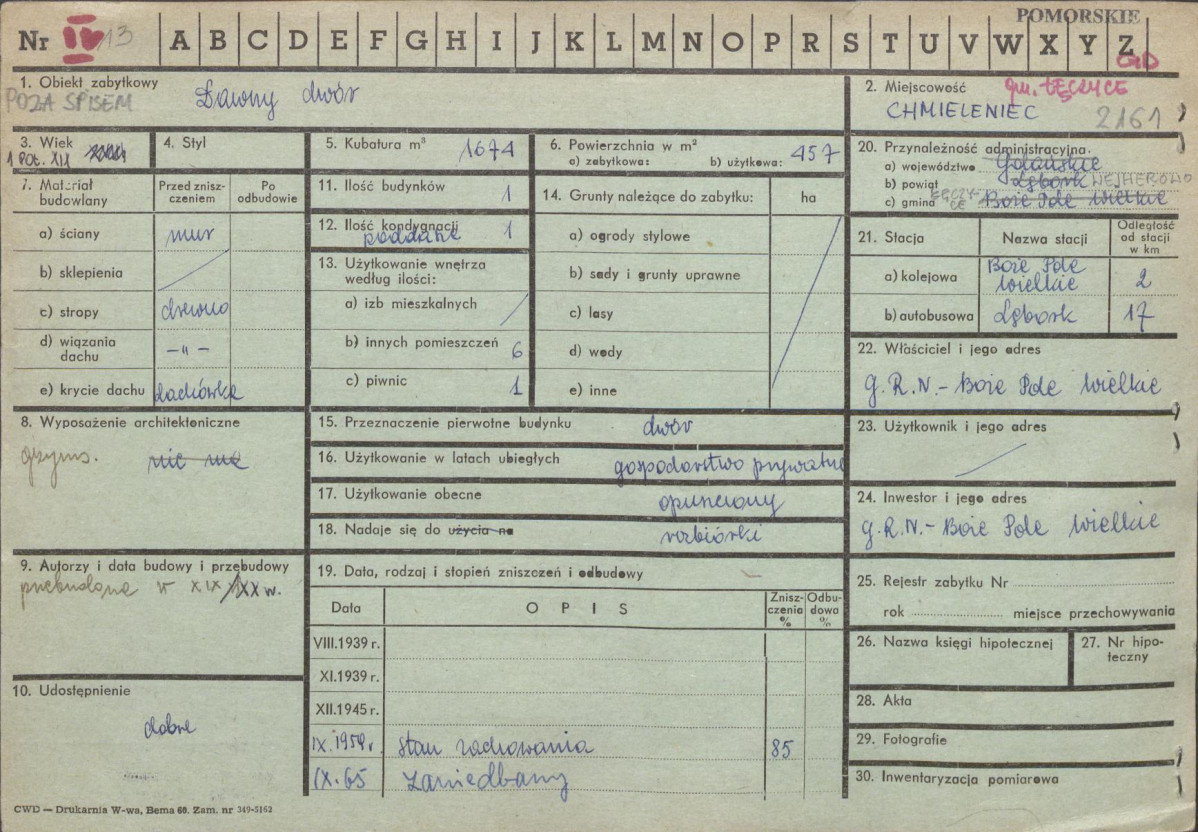 POMORSKIE
Nr IV 13 A B C D E F G H I J K L M N O P R S T U V W X Y Z
GD
1. Obiekt zabytkowy
POZA SPISEM Dawny dwór
2. Miejscowość gm. ŁĘCZYCE
CHMIELENIEC 2161
3. Wiek
1 POŁ. XIX
4. Styl
5. Kubatura m³ 1674
6. Powierzchnia w m²
a) zabytkowa: b) użytkowa: 457
7. Materiał budowlany
Przed zniszczeniem
Po odbudowie
a) ściany mur
b) sklepienia
c) stropy drewno
d) wiązania dachu -„-
e) krycie dachu dachówka
8. Wyposażenie architektoniczne
gzyms. nic ma
9. Autorzy i data budowy i przebudowy
przebudowa w XIX/XX w.
10. Udostępnienie
dobre
11. Ilość budynków 1
12. Ilość kondygnacji 1
poddasze
13. Użytkowanie wnętrza
według ilości:
a) izb mieszkalnych
b) innych pomieszczeń 6
c) piwnic 1
14. Grunty należące do zabytku: ha
a) ogrody stylowe
b) sady i grunty uprawne
c) lasy
d) wody
e) inne
15. Przeznaczenie pierwotne budynku dwór
16. Użytkowanie w latach ubiegłych gospodarstwo prywatne
17. Użytkowanie obecne opuszczony
18. Nadaje się do użycia na rozbiórki
19. Data, rodzaj i stopień zniszczeń i odbudowy
Data OPIS Zniszczenia % Odbudowa %
VIII.1939 r.
XI.1939 r.
XII.1945 r.
IX.1959r. stan zachowania 85
IX.65 zaniedbany
20. Przynależność administracyjna
a) województwo Gdańskie
b) powiat Lębork WEJHEROWO
c) gmina ŁĘCZYCE Boże Pole wielkie
21. Stacja Nazwa stacji Odległość od stacji w km
a) kolejowa Boże Pole wielkie 2
b) autobusowa Lębork 17
22. Właściciel i jego adres
G.R.N - Boże Pole wielkie
23. Użytkownik i jego adres
24. Inwestor i jego adres
G.R.N. - Boże Pole wielkie
25. Rejestr zabytku Nr
rok miejsce przechowywania
26. Nazwa księgi hipotecznej
27. Nr hipoteczny
28. Akta
29. Fotografie
30. Inwentaryzacja pomiarowa
CWD — Drukarnia W-wa, Bema 60. Zam. nr 349-5162